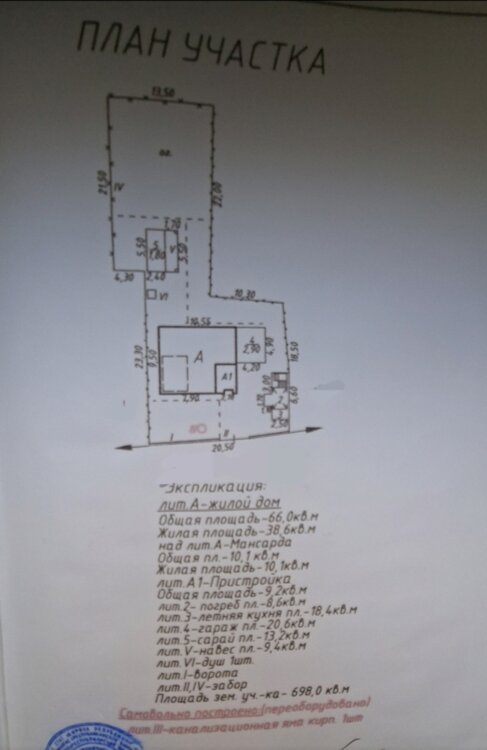 ПЛАН УЧАСТКА
13,50
ог.
21,50
IV
22,00
1,70
5,50
5
1,80
V
5,50
4,30
2,40
VI
10,30
10,55
23,30
9,50
A
4
2,90
4,90
4,20
18,50
A1
3,00
6,60
2
3
2,50
7,90
I
II
20,50
Экспликация:
лит.А-жилой дом
Общая площадь-66,0кв.м
Жилая площадь-38,6кв.м
над лит.А-Мансарда
Общая пл.-10,1 кв.м
Жилая площадь-10,1кв.м
лит.А1-Пристройка
Общая площадь-9,2кв.м
лит.2- погреб пл.-8,6кв.м
лит.3-летняя кухня пл.-18,4кв.м
лит.4-гараж пл.-20,6кв.м
лит.5-сарай пл.-13,2кв.м
лит.V-навес пл.-9,4кв.м
лит.VI-душ 1шт.
лит.I-ворота
лит.II,IV-забор
Площадь зем. уч.-ка- 698,0 кв.м
Самовольно построено:(переоборудовано)
лит.III-канализационная яма кирп. 1шт